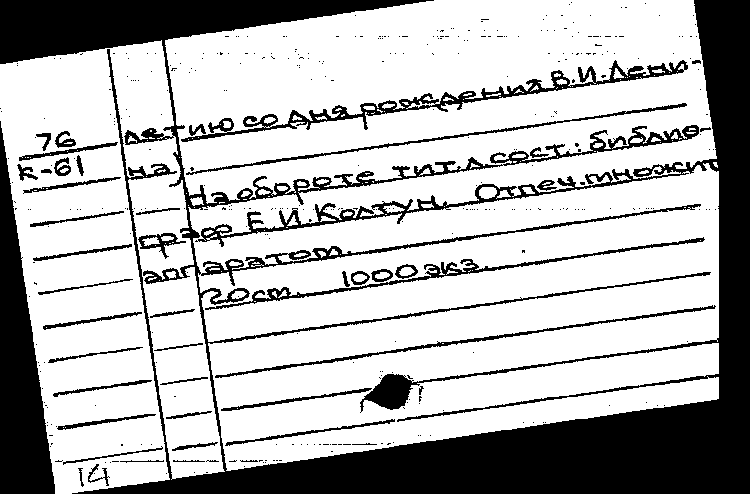 летию со дня рождения В.И.Лени-
76
К-61
на).
На обороте тит.л.сост.: библио-
граф Е.И.Колтун. Отпеч.множит
аппаратом.
20см. 1000 экз.
14